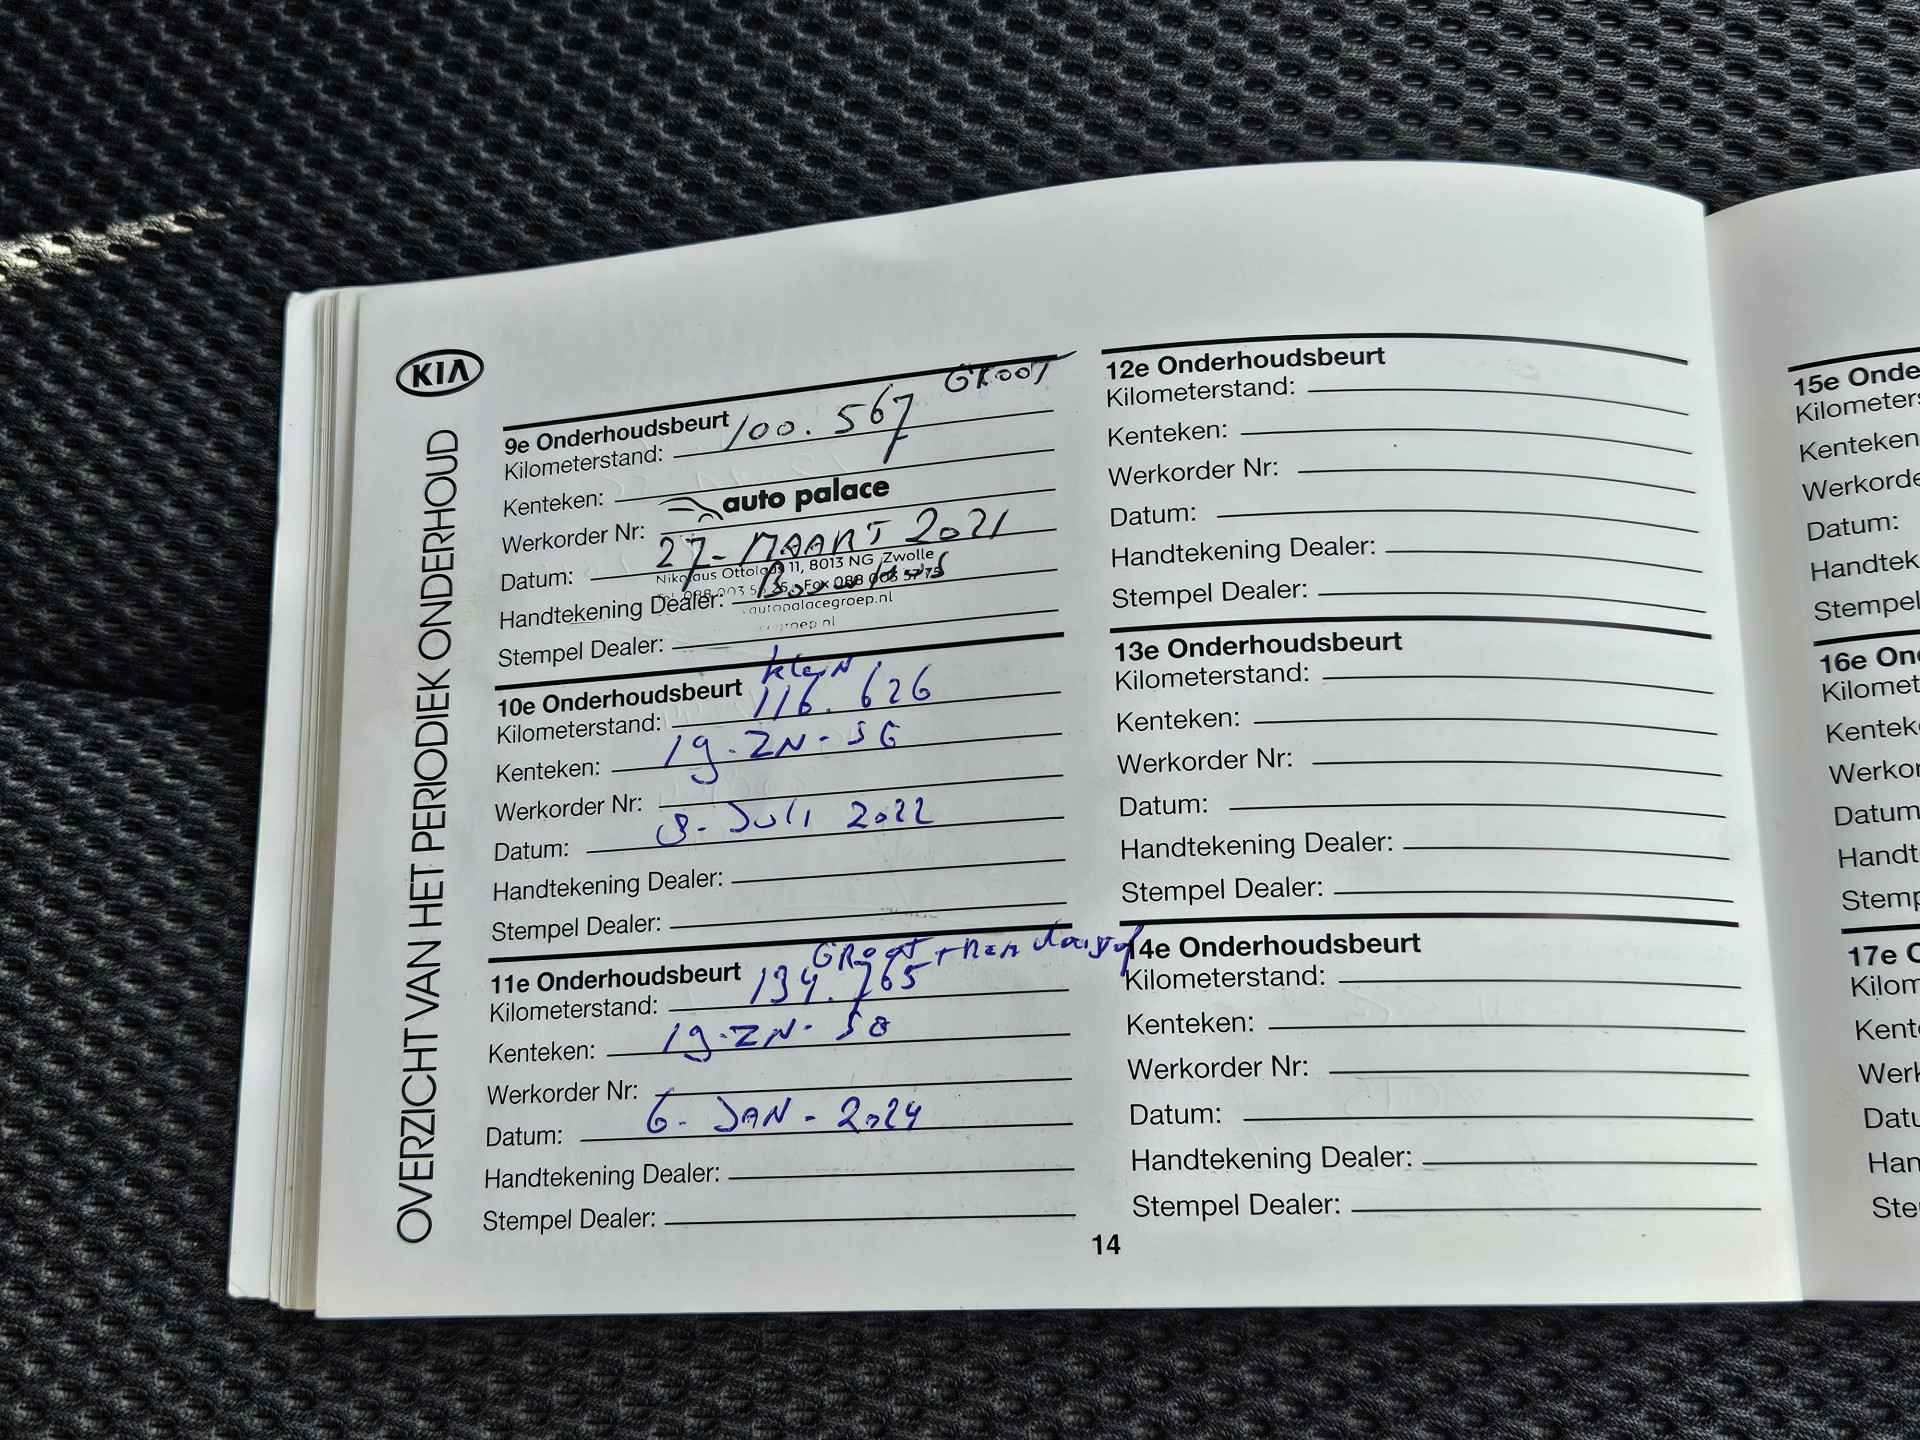 KIA
OVERZICHT VAN HET PERIODIEK ONDERHOUD
GROOT
9e Onderhoudsbeurt
Kilometerstand: 100.567
Kenteken:
auto palace
Werkorder Nr:
Datum: 27-MAART 2021
Nikolaus Ottolaan 11, 8013 NG Zwolle
Handtekening Dealer:
autopalacegroep.nl
Stempel Dealer:
klein
10e Onderhoudsbeurt
Kilometerstand: 116.626
Kenteken: 19-ZN-SG
Werkorder Nr:
Datum: 8-Juli 2022
Handtekening Dealer:
Stempel Dealer:
GROOT +
11e Onderhoudsbeurt
Kilometerstand: 134.765
Kenteken: 19-ZN-
Werkorder Nr:
Datum: 6-JAN-2024
Handtekening Dealer:
Stempel Dealer:
12e Onderhoudsbeurt
Kilometerstand:
Kenteken:
Werkorder Nr:
Datum:
Handtekening Dealer:
Stempel Dealer:
13e Onderhoudsbeurt
Kilometerstand:
Kenteken:
Werkorder Nr:
Datum:
Handtekening Dealer:
Stempel Dealer:
14e Onderhoudsbeurt
Kilometerstand:
Kenteken:
Werkorder Nr:
Datum:
Handtekening Dealer:
Stempel Dealer:
14
15e Onde
Kilometers
Kenteken
Werkorde
Datum:
Handtek
Stempel
16e On
Kilomet
Kentek
Werkor
Datum
Handt
Stemp
17e O
Kilom
Kent
Werk
Datu
Han
Ste